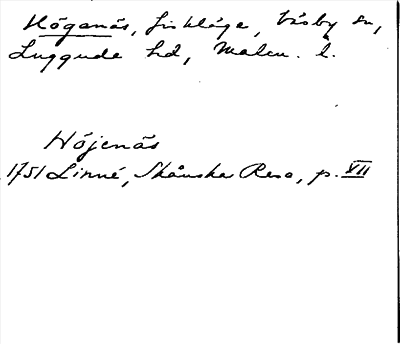 Höganäs, fiskläge, Väsby sn,
Luggude hd, Malm. l.
Höjenäs
1751 Linné, Skånska Resa, p. VII